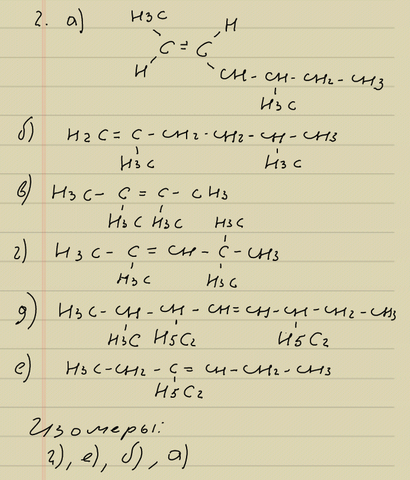 2. а) H3C H
C = C
H CH - CH - CH2 - CH3
H3C
б) H2C = C - CH2 - CH2 - CH - CH3
H3C H3C
в) H3C - C = C - CH3
H3C H3C H3C
г) H3C - C = CH - C - CH3
H3C H3C
д) H3C - CH - CH - CH = CH - CH - CH2 - CH3
H3C H5C2 H5C2
е) H3C - CH2 - C = CH - CH2 - CH3
H5C2
Изомеры:
г), е), б), а)